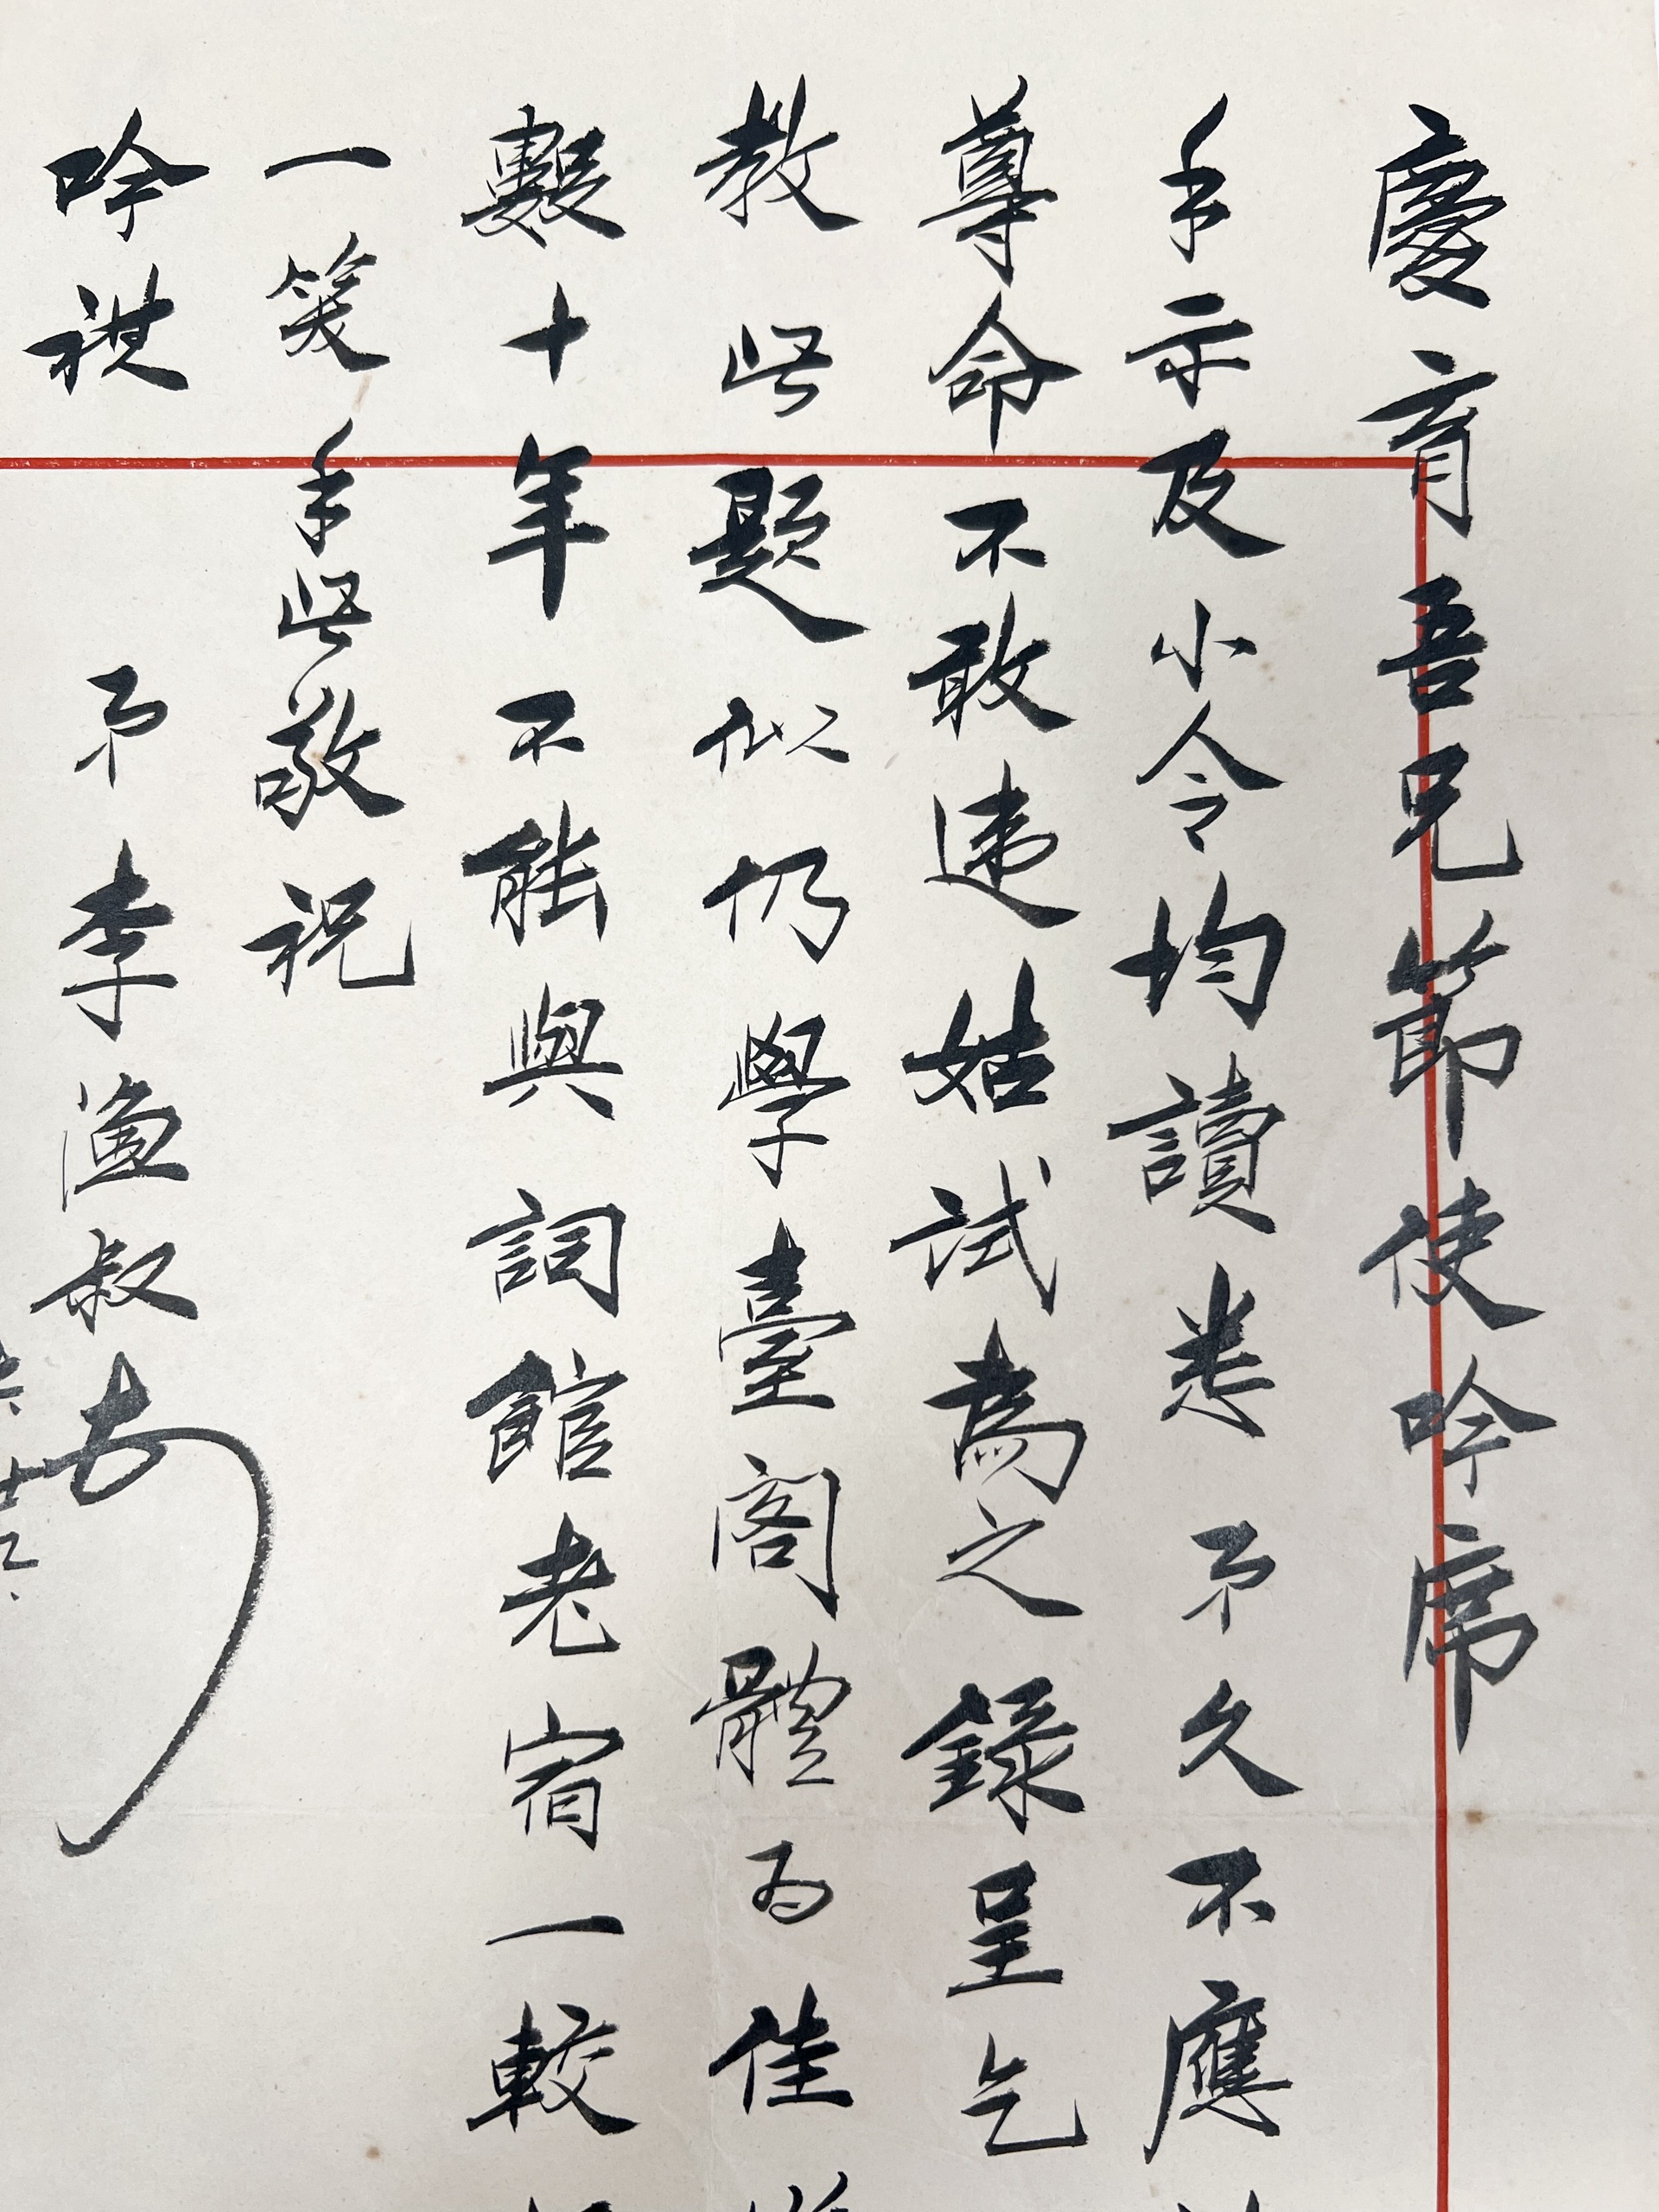 慶育吾兄節使吟席
手示及小令均讀悉弟久不應
尊命不敢違姑試為之錄呈乞
教此題似仍學臺閣體為佳
數十年不能與詞館老宿一較
一笑手此敬祝
吟祺
弟李漁叔